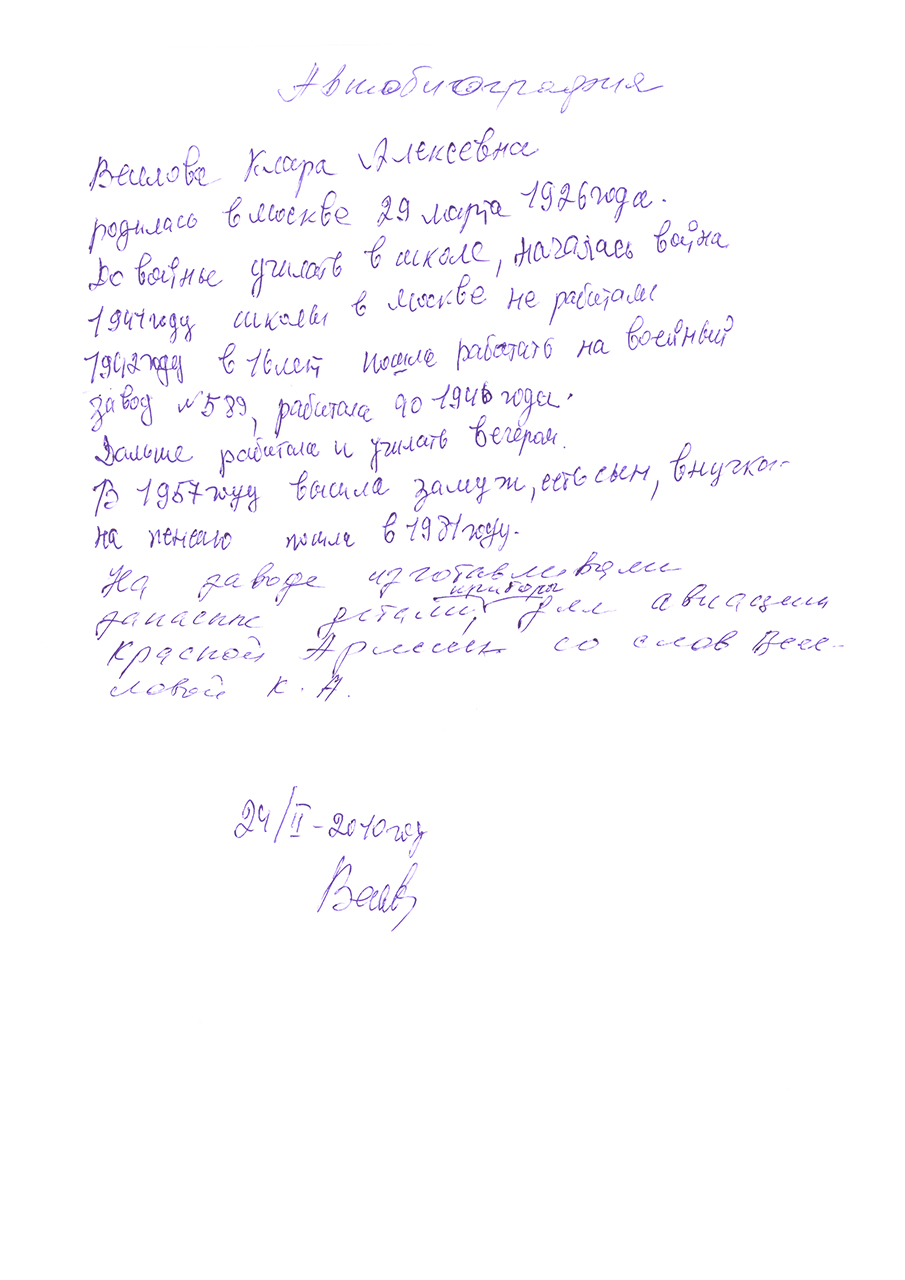 Автобиография
Веслова Клара Алексеевна
родилась в Москве 29 марта 1926 года.
До войные училать в школе, началась война
1941 году школы в Москве не работали
1942 году в 16 лет пошла работать на воейный
завод №589, работала до 1946 года.
Дальше работала и училать вечером.
В 1957 году вышла замуж, есть сын, внучка.
на пенсию пошла в 1981 году.
На заводе изготавливали
приборы
запасные детали, для авиации
Красной Армии со слов Вес-
ловой К. А.
24/II – 2010 год